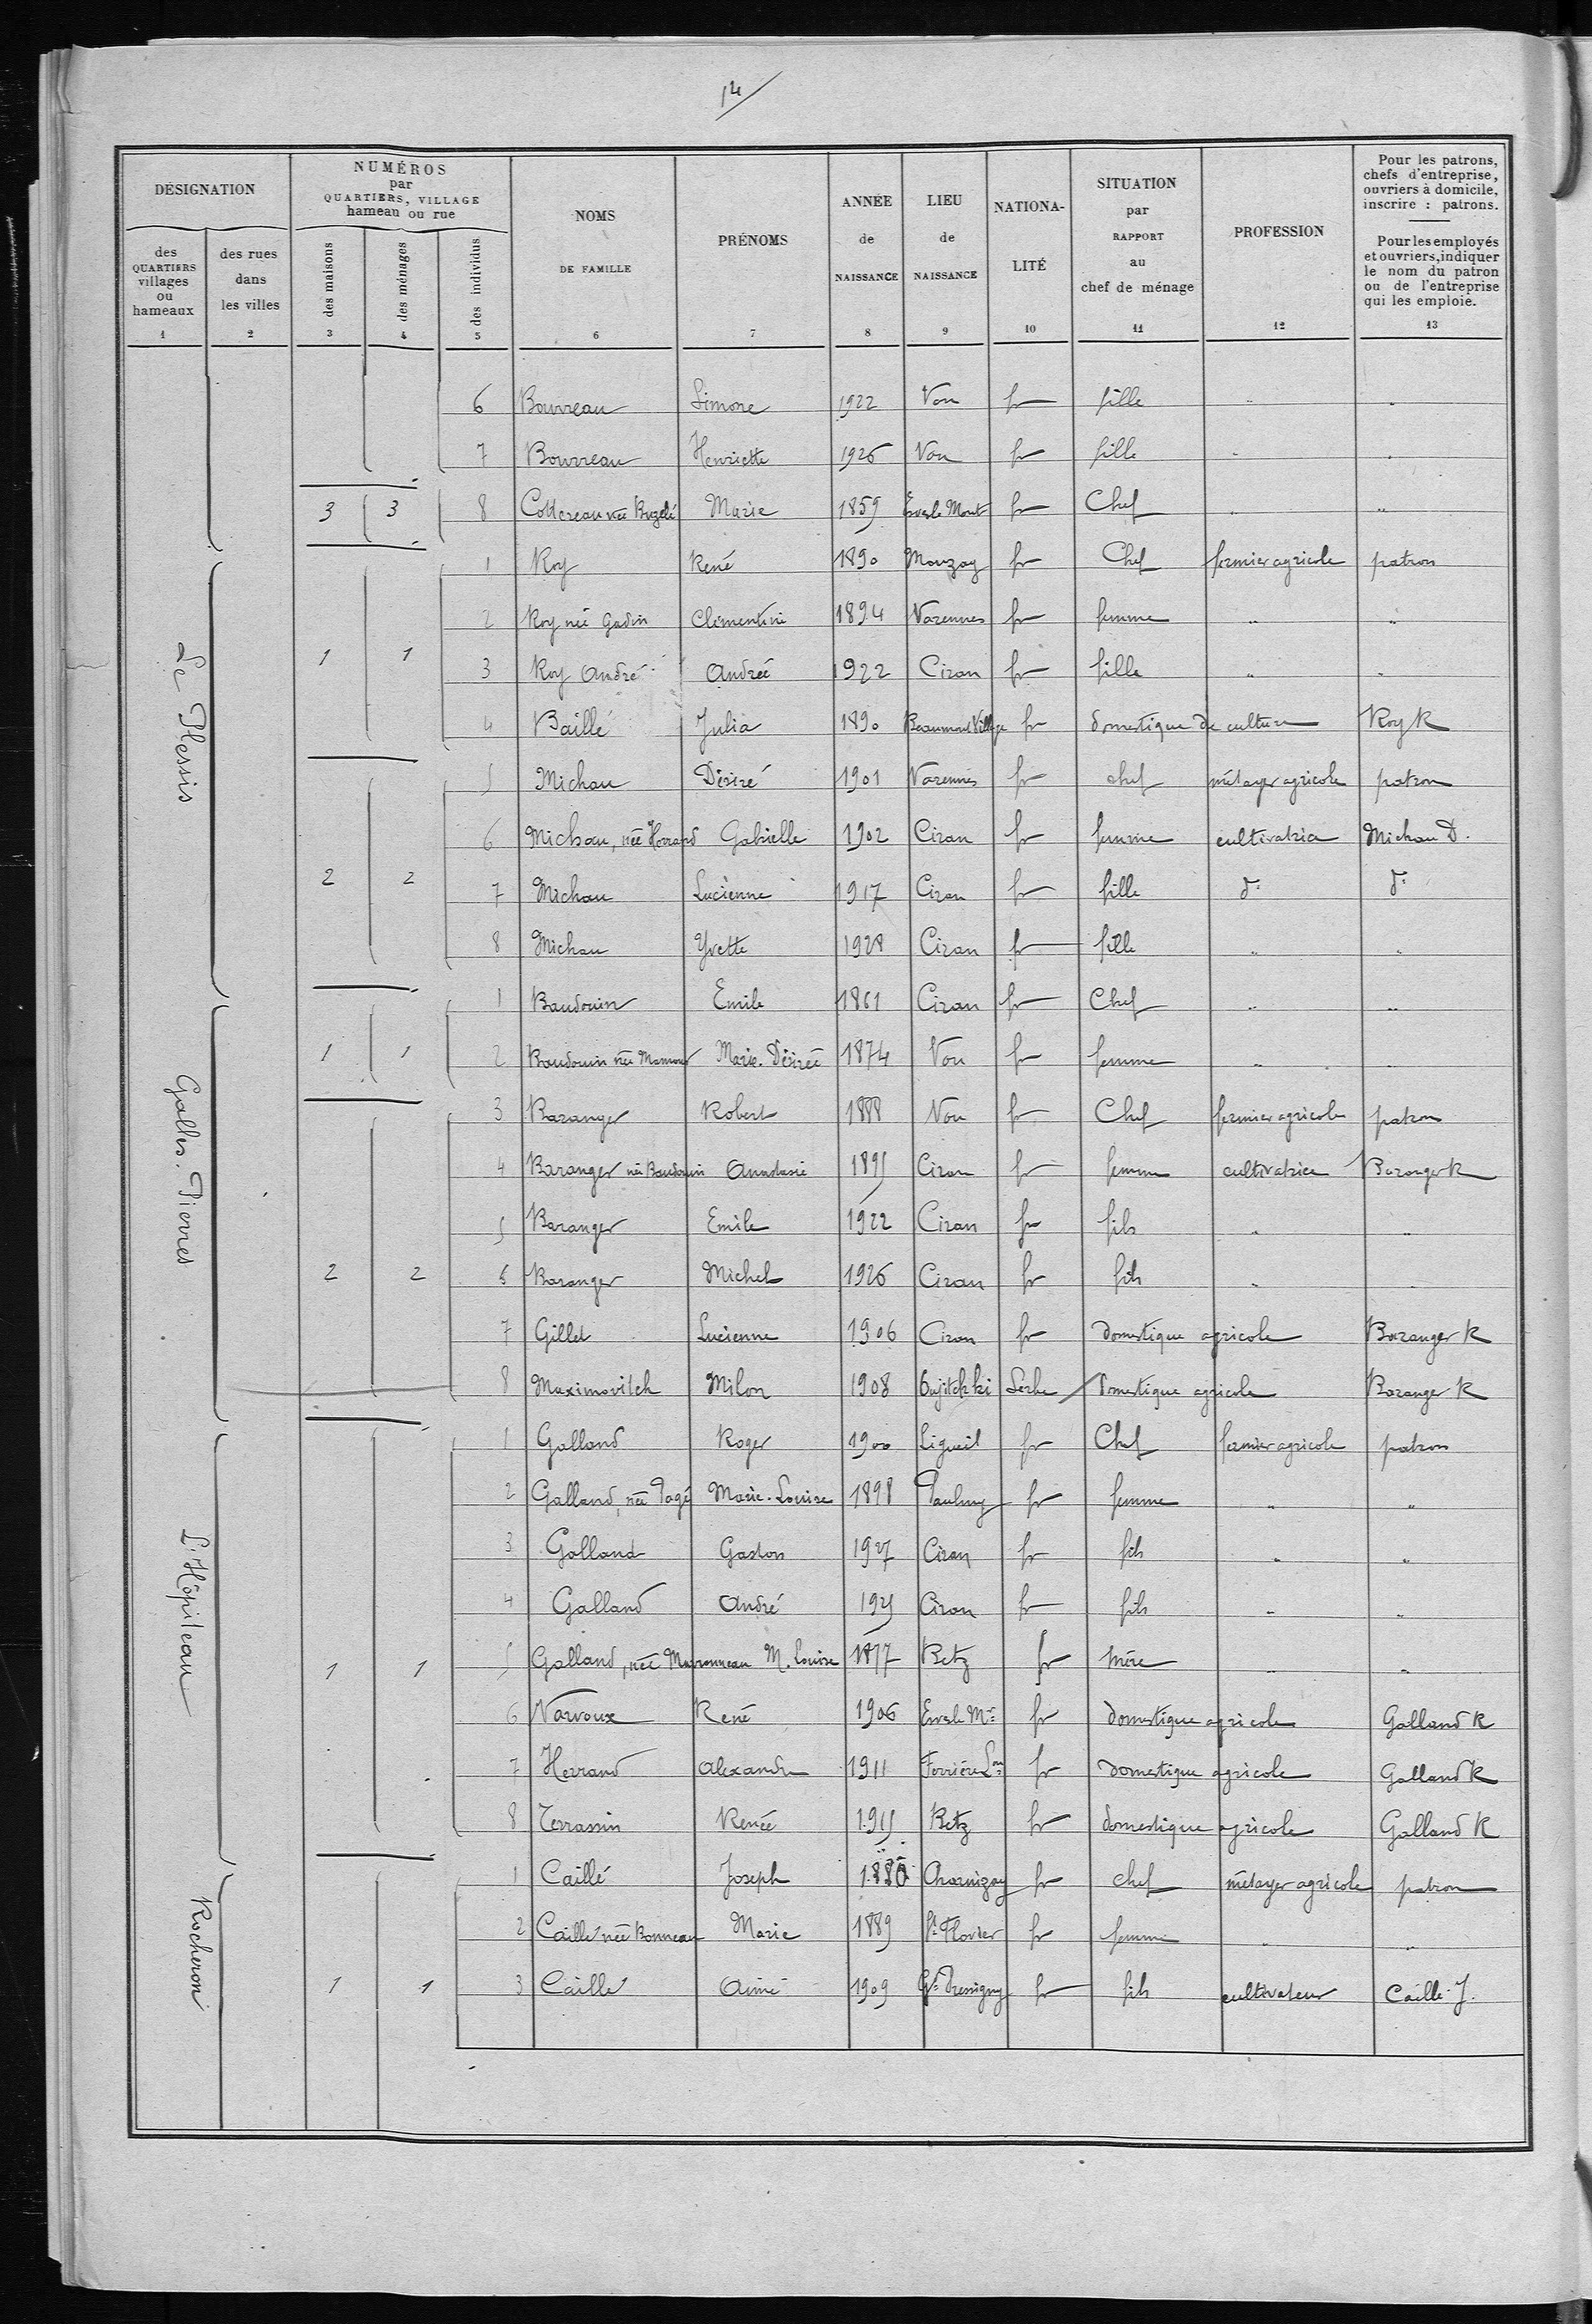 14
DÉSIGNATION
des QUARTIERS villages ou hameaux
1
des rues dans les villes
2
NUMÉROS par QUARTIERS, VILLAGE hameau ou rue
des maisons
3
des ménages
4
des individus
5
NOMS DE FAMILLE
6
PRÉNOMS
7
ANNÉE de NAISSANCE
8
LIEU de NAISSANCE
9
NATIONA-LITÉ
10
SITUATION par RAPPORT au chef de ménage
11
PROFESSION
12
Pour les patrons, chefs d'entreprise, ouvriers à domicile, inscrire : patrons.
Pour les employés et ouvriers, indiquer le nom du patron ou de l'entreprise qui les emploie.
13
6 Bourreau Simone 1922 Vou fr fille " "
7 Bourreau Henriette 1926 Vou fr fille " "
3 3 8 Cottereau née Marie 1859 Esves le Mout fr Chef " "
Le Plessis
1 Roy René 1890 Mouzay fr Chef fermier agricole patron
2 Roy née Gadin Clémentine 1894 Varennes fr femme " "
1 1 3 Roy André Andrée 1922 Ciran fr fille " "
4 Baillé Julia 1890 Beaumont Village fr domestique de culture Roy R
5 Michau Désiré 1901 Varennes fr chef métayer agricole patron
6 Michau, née Gabrielle 1902 Ciran fr femme cultivatrice Michau D.
2 2 7 Michau Lucienne 1917 Ciran fr fille d° d°
8 Michau Yvette 1928 Ciran fr fille " "
Galles. Pierres
1 Baudouin Emile 1861 Ciran fr Chef " "
1 1 2 Baudouin née Marie. Désirée 1874 Vou fr femme " "
3 Baranger Robert 1888 Vou fr Chef fermier agricole patron
4 Baranger née Baudouin Anastasie 1895 Ciran fr femme cultivatrice Baranger R
5 Baranger Emile 1922 Ciran fr fils " "
2 2 6 Baranger Michel 1926 Ciran fr fils " "
7 Gillet Lucienne 1906 Ciran fr domestique agricole Baranger R
8 Maximovitch Milon 1908 Serbe domestique agricole Baranger R
L'Hôpiteau
1 Galland Roger 1900 Ligueil fr Chef fermier agricole patron
2 Galland, née Pagé Marie. Louise 1898 Paulmy fr femme " "
3 Galland Gaston 1927 Ciran fr fils " "
4 Galland André 1925 Ciran fr fils " "
1 1 5 Galland, née M. Louise 1877 Betz fr mère " "
6 Narvoux René 1906 Esves le Mt fr domestique agricole Galland R
7 Herrand Alexandre 1911 Ferrière Lon fr domestique agricole Galland R
8 Terrassin Renée 1915 Betz fr domestique agricole Galland R
Rocheron
1 Caillé Joseph 1880 Charnizay fr chef métayer agricole patron
2 Caillé née Bonneau Marie 1889 St Flovier fr femme " "
1 1 3 Caillé Aimé 1909 Gd Pressigny fr fils cultivateur Caillé J.